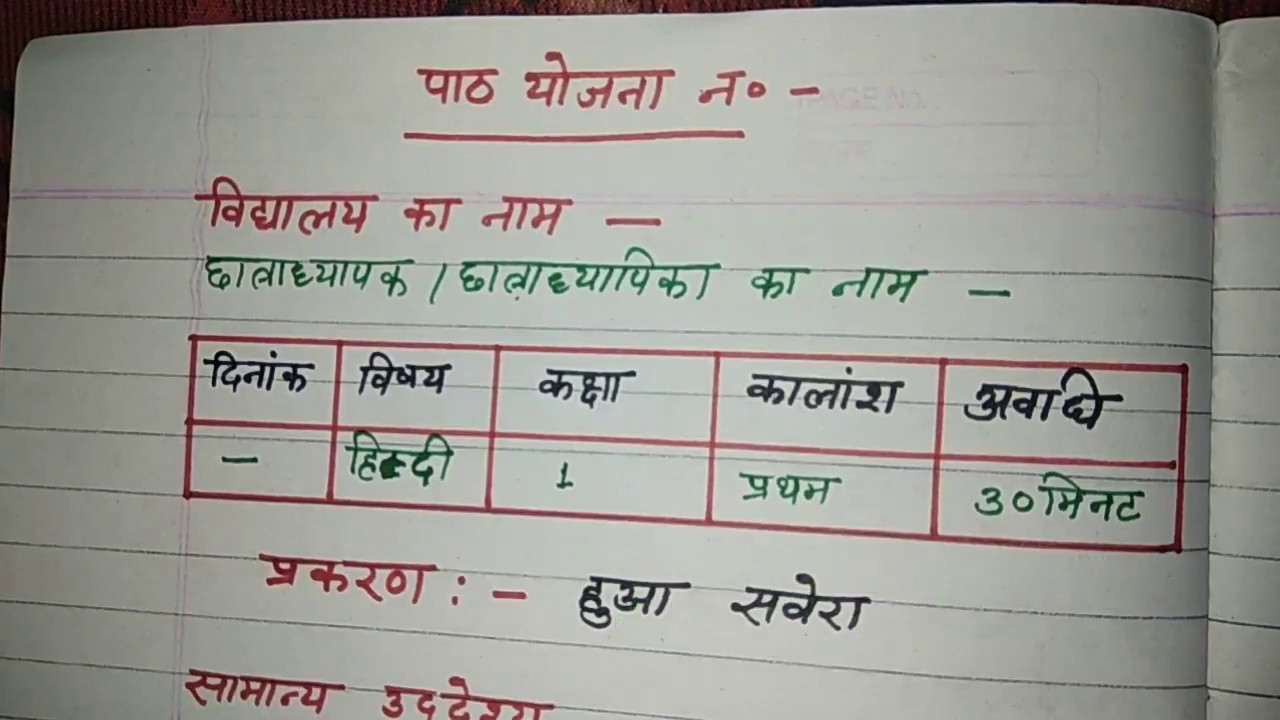 पाठ योजना न० -
विद्यालय का नाम —
छात्राध्यापक / छात्राध्यापिका का नाम —
दिनांक विषय कक्षा कालांश अवधि
— हिन्दी 1 प्रथम 30 मिनट
प्रकरण : - हुआ सवेरा
सामान्य उद्देश्य